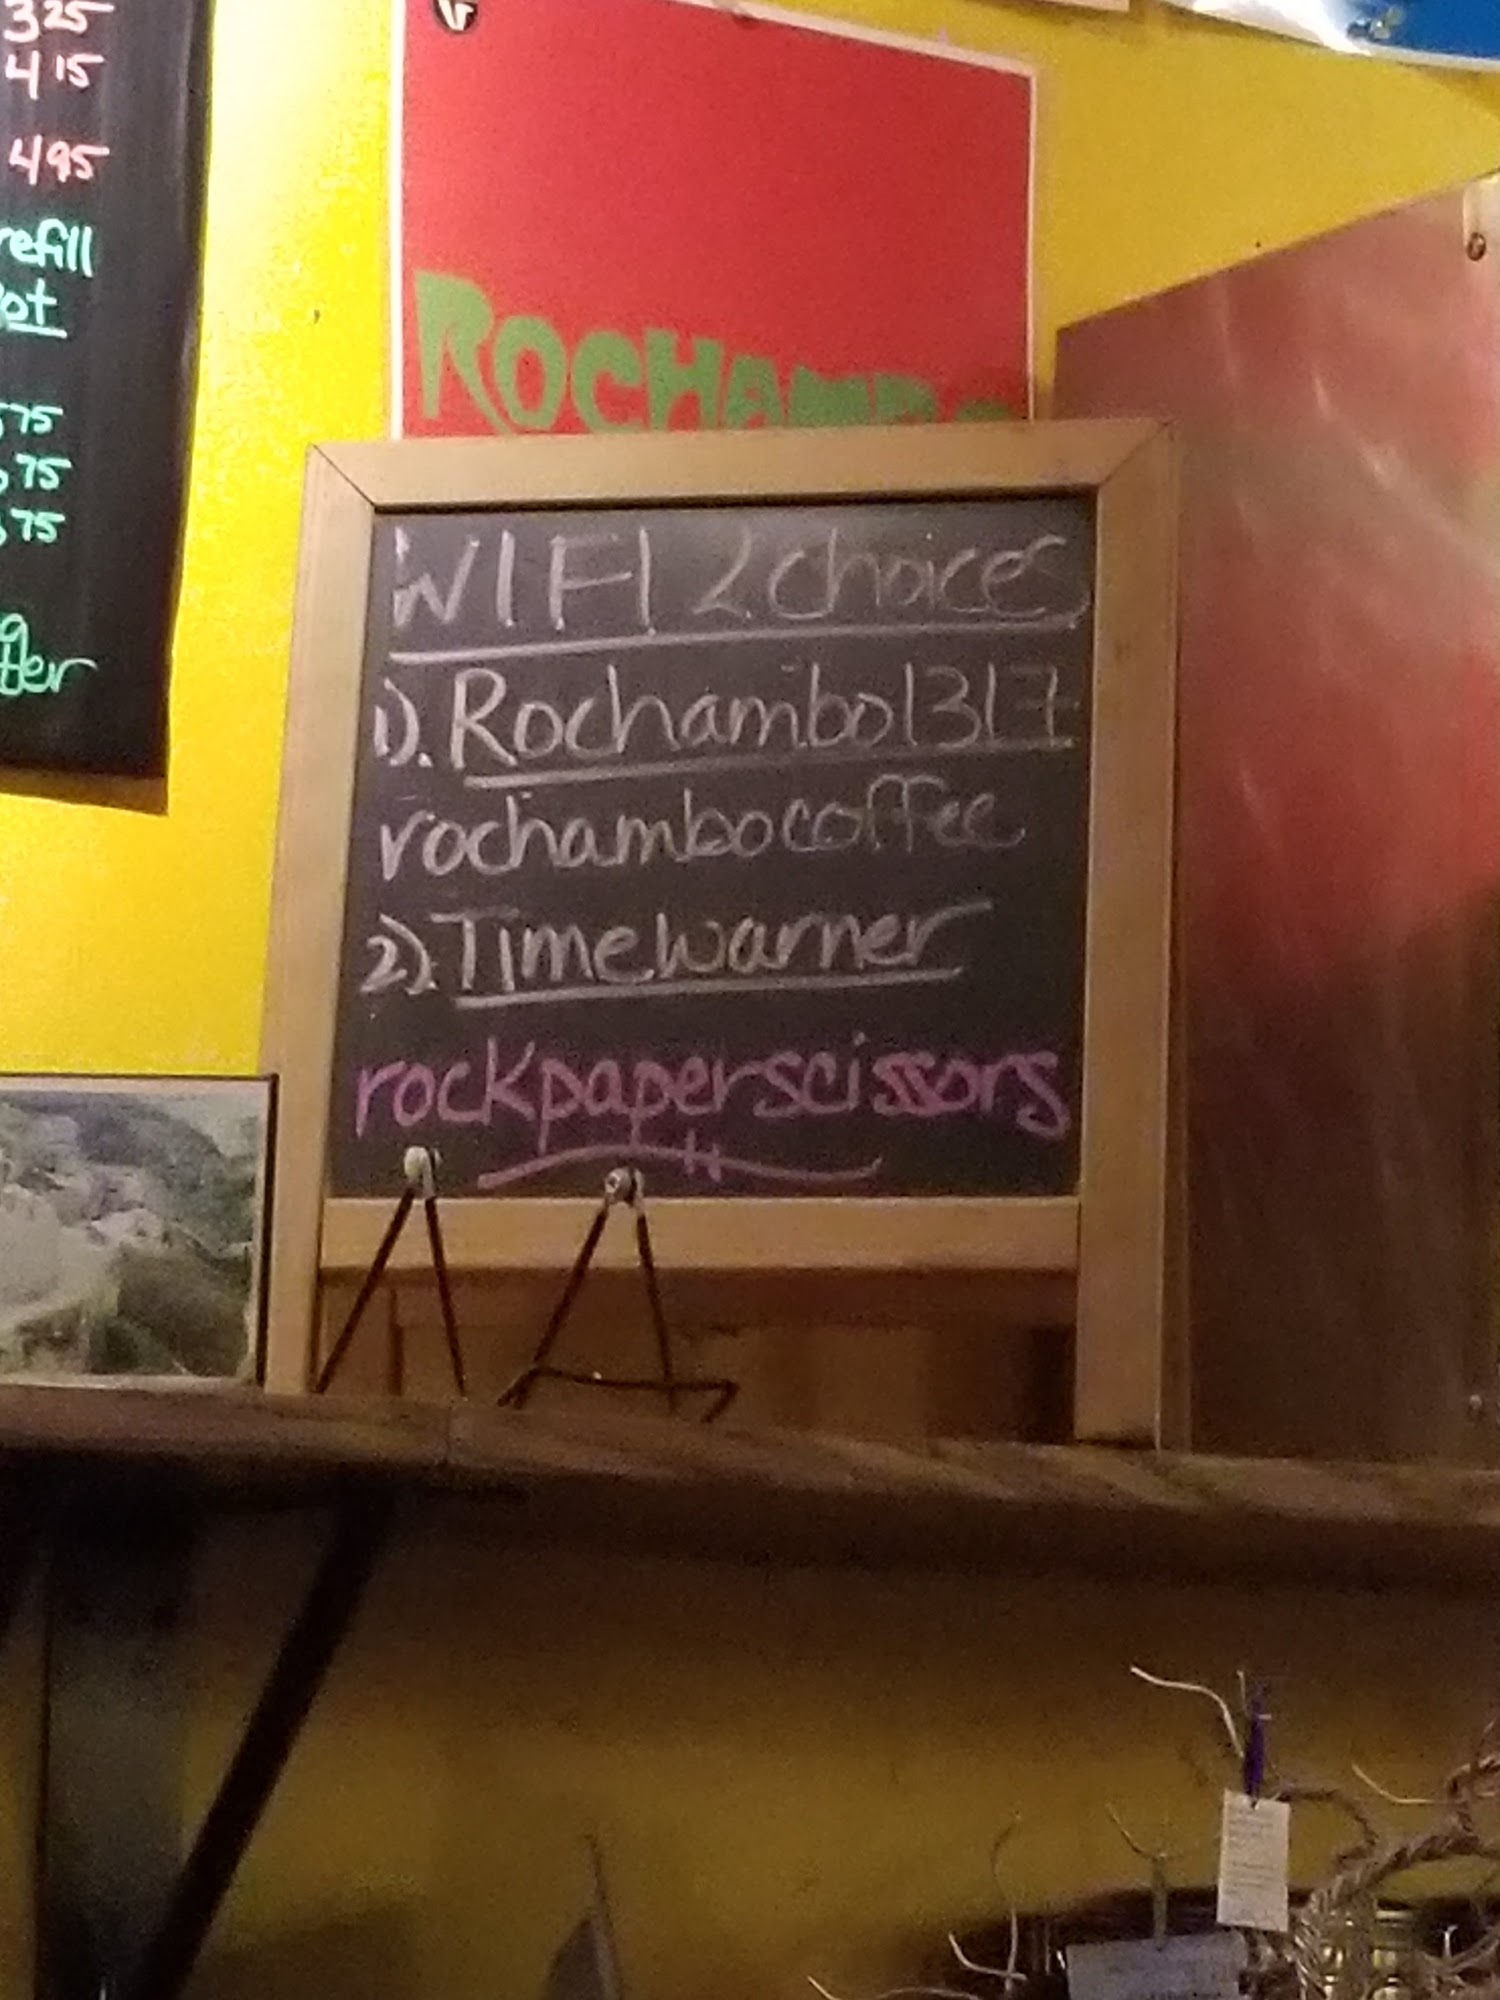 325
415
495
refill
ot
575
75
75
ROCHAMBO
WIFI 2 choices
1). Rochambo1317
rochambocoffee
2). Timewarner
rockpaperscissors